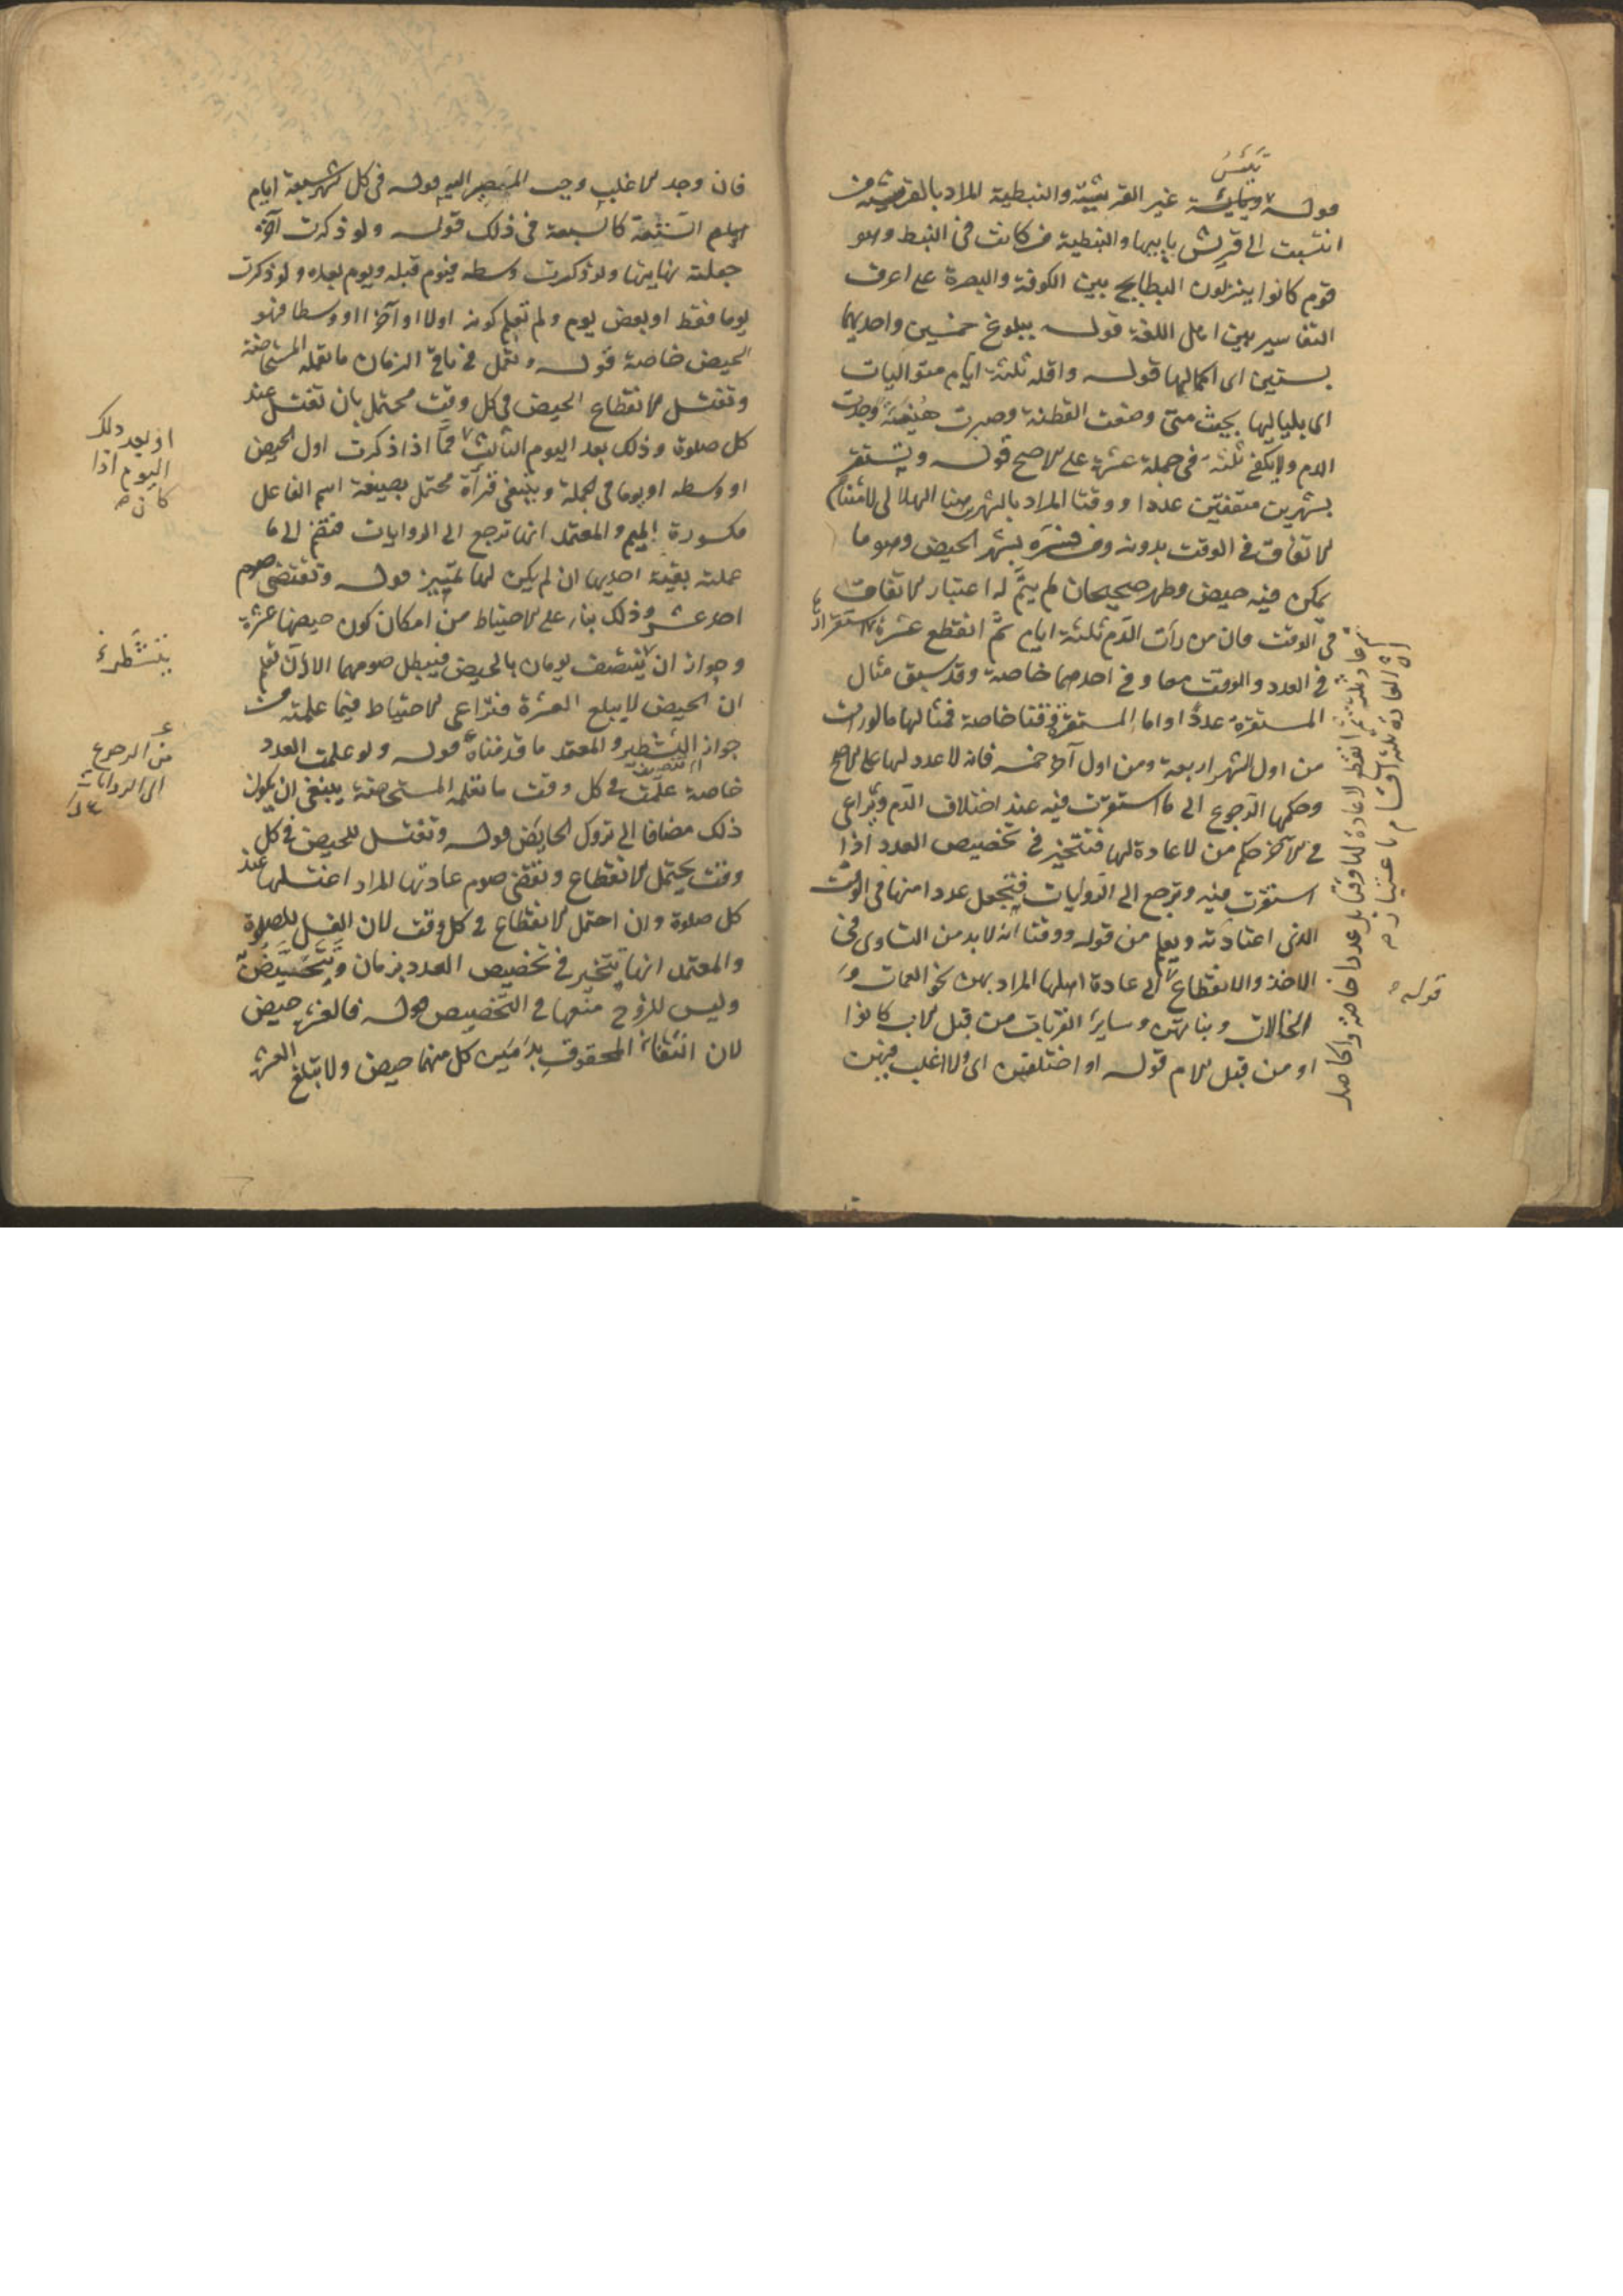 تيئس
قوله ويائسة غير القرشية والنبطية المراد بالقرشية من
انتسبت الى قريش بابيها والنبطية من كانت من النبط وهو
قوم كانوا ينزلون البطايح بين الكوفة والبصرة على اعرف
التفاسير بين اهل اللغة قوله ببلوغ خمسين واحديهما
بستين اى اكمالها قوله واقله ثلثة ايام متواليات
اى بلياليها بحيث متى وضعت القطنة وصبرت هنيئة وجدت
الدم ولا يكفى ثلثة فى جملة عشرة على الاصح قوله وتستقر
بشهرين متفقين عددا ووقتا المراد بالشهرين هنا الهلالى لامتناع
الاتفاق فى الوقت بدونه ومن فسره بشهر الحيض وهو ما
يمكن فيه حيض وطهر صحيحان لم يتم له اعتبار الاتفاق
فى الوقت فان من رأت الدم ثلثة ايام ثم انقطع عشرة الاستقرار
فى العدد والوقت معا وفى احدهما خاصة وقد سبق مثال
المستقرة عددا واما المستقرة وقتا خاصة فمثالها ما لو رأت
من اول الشهر اربعة ومن اول آخر خمسة فانه لا عدد لها على الاصح
وحكمها الرجوع الى ما استقرت فيه عند اختلاف الدم وتراعى
فى الآخر حكم من لا عادة لها فتتخير فى تخصيص العدد اذا
استقرت فيه وترجع الى الروايات فتجعل عددا منها فى الوقت
الذى اعتادته ويعلم من قوله ووقتا انه لا بد من التساوى فى
الاخذ والانقطاع الى عادة اهلها المراد بهن نحو العمات و
الخالات وبناتهن وساير القرابات من قبل الاب كانوا
او من قبل الام قوله او اختلفن اى ولا اغلب فيهن
ثم عاد ثلثة ثم انقطع لا عادة لها وقتا بل عددا خاصة والحاصل
ان العادة ثلثة اقسام باعتبار
قوله
فان وجد الاغلب وجب المصير اليه قوله فى كل شهر سبعة ايام
الستة كالسبعة فى ذلك قوله ولو ذكرت آخره
جعلته نهايتها ولو ذكرت وسطه فيوم قبله ويوم بعده ولو ذكرت
يوما فقط او بعض يوم ولم تعلم كونه اولا او آخرا او وسطا فهو
الحيض خاصة قوله وتعمل فى باقى الزمان ما تعمله المستحاضة
وتغتسل لانقطاع الحيض فى كل وقت محتمل بان تغتسل عند
كل صلوة وذلك بعد اليوم الثالث فما اذا ذكرت اول الحيض
او وسطه او يوما فى الجملة وينبغى قرأة محتمل بصيغة اسم الفاعل
مكسورة الميم والمعتمد انها ترجع الى الروايات فتضم الى ما
علمته بقية احديها ان لم يكن لها تمييز قوله وتقضى صوم
احد عشر وذلك بناء على الاحتياط من امكان كون حيضها عشرة
وجواز ان ينتصف يومان بالحيض فيبطل صومهما الا ان تعلم
ان الحيض لا يبلغ العشرة فتراعى الاحتياط فيما علمته من
جواز التشطير والمعتمد ما قدمناه قوله ولو علمت العدد
خاصة علمت فى كل وقت ما تعلمه المستحاضة ينبغى ان يكون
ذلك مضافا الى تروك الحايض قوله وتغتسل للحيض فى كل
وقت يحتمل الانقطاع وتقضى صوم عادتها المراد اغتسلها عند
كل صلوة وان احتمل الانقطاع فى كل وقت لان الغسل للصلوة
والمعتمد انها تتخير فى تخصيص العدد بزمان وتتحيض
وليس للزوج منعها فى التخصيص قوله فالعشرة حيض
لان النقاء المحفوف بدمين كل منهما حيض ولا تبلغ العشرة
او بعد ذلك
اليوم اذا
كان
يتشطر
من الرجوع
الى الروايات